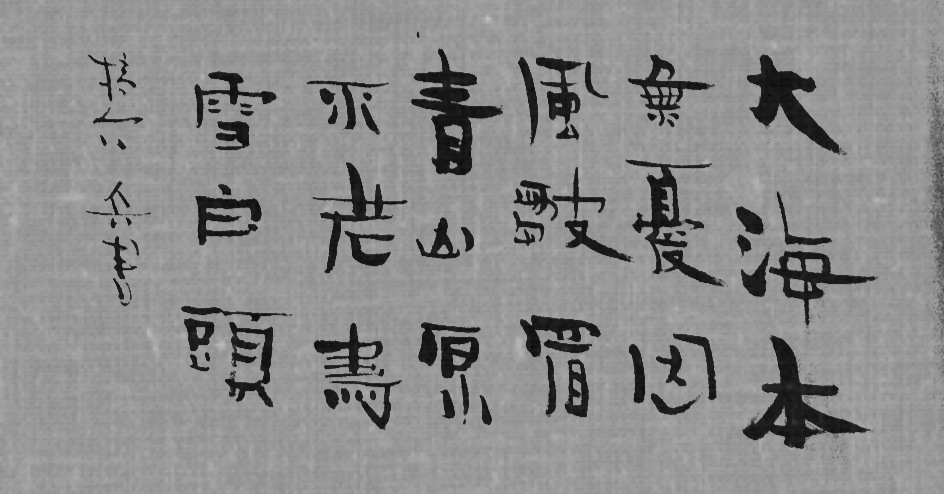 大海本
無憂因
風皺眉
青山原
不老為
雪白頭